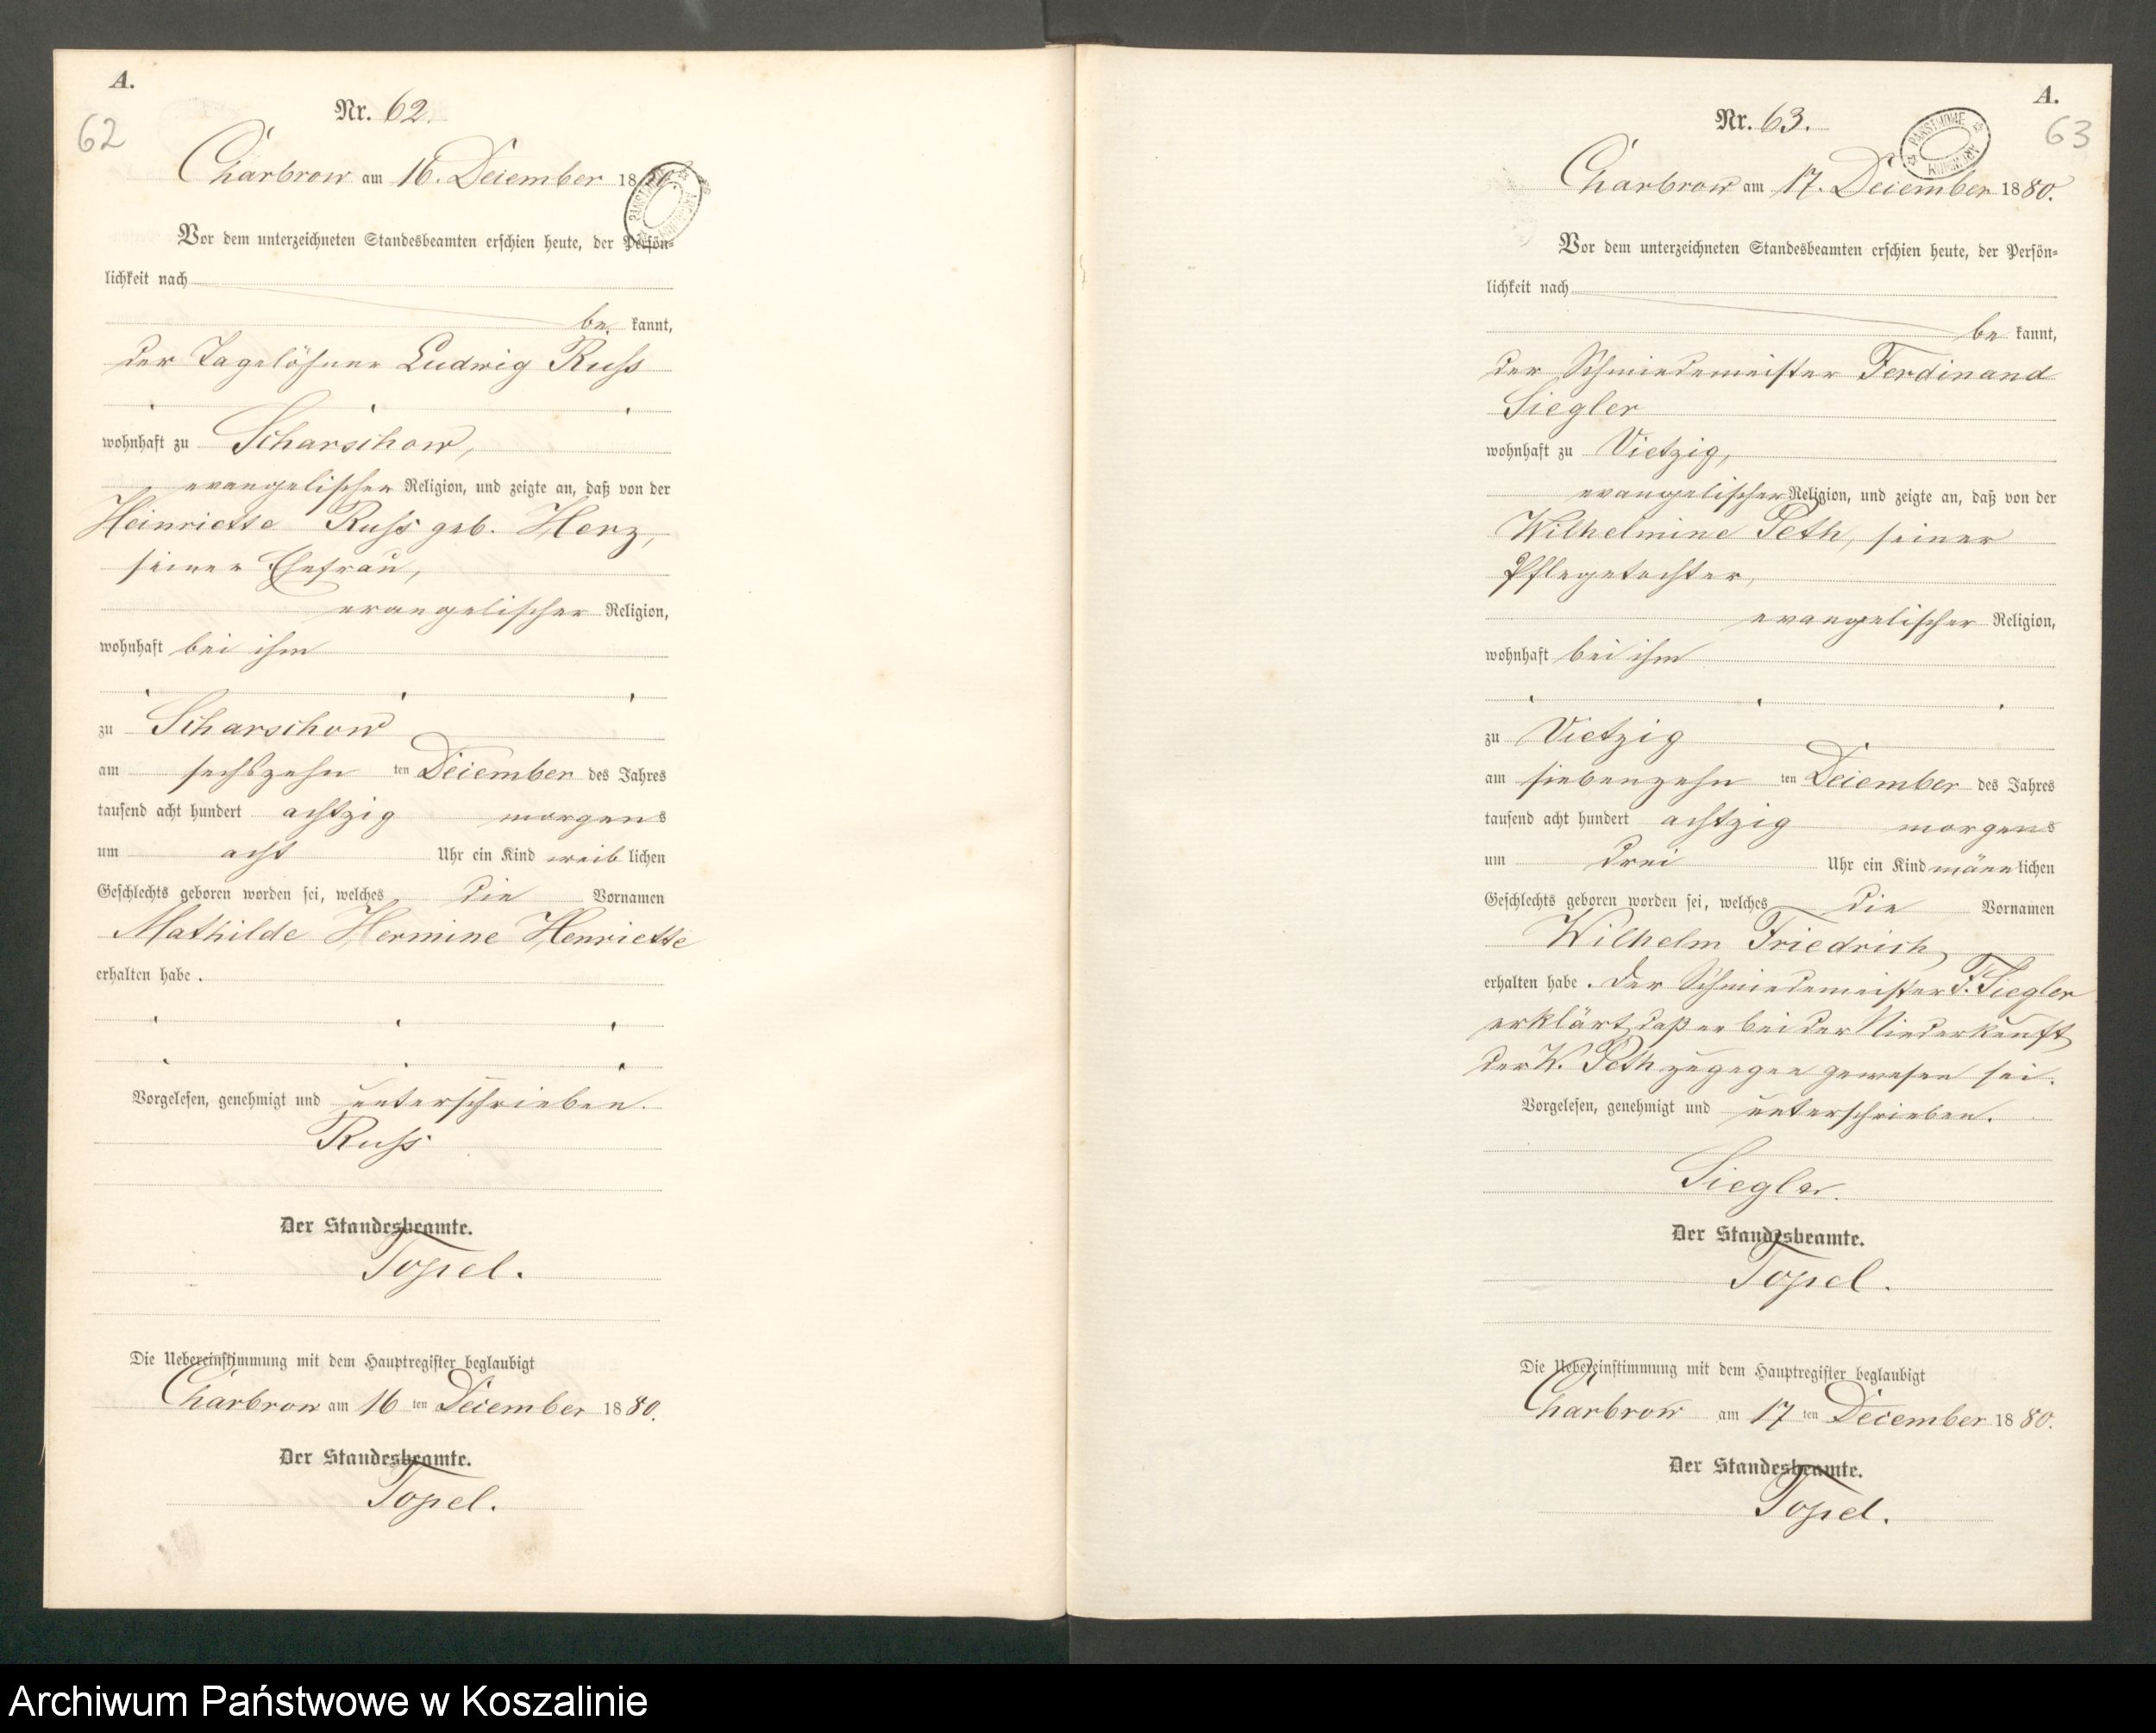 A.
62
Nr. 62.
Charbrow am 16. December 1880
Vor dem unterzeichneten Standesbeamten erschien heute, der Persön-
lichkeit nach
be kannt,
der Tagelöhner Ludwig Russ
wohnhaft zu Scharschow,
evangelischer Religion, und zeigte an, daß von der
Heinriette Russ geb. Herz,
seiner Ehefrau,
evangelischer Religion,
wohnhaft bei ihm
zu Scharschow
am sechszehn ten December des Jahres
tausend acht hundert achtzig morgens
um acht Uhr ein Kind weib lichen
Geschlechts geboren worden sei, welches die Vornamen
Mathilde Hermine Henriette
erhalten habe.
Vorgelesen, genehmigt und unterschrieben.
Russ
Der Standesbeamte.
Topel.
Die Uebereinstimmung mit dem Hauptregister beglaubigt
Charbrow am 16 ten December 1880.
Der Standesbeamte.
Topel.
A.
63
Nr. 63.
PAŃSTWOWE ARCHIWUM
Charbrow am 17. December 1880.
Vor dem unterzeichneten Standesbeamten erschien heute, der Persön-
lichkeit nach
be kannt,
der Schmiedemeister Ferdinand
Siegler
wohnhaft zu Vietzig,
evangelischer Religion, und zeigte an, daß von der
Wilhelmine Peth, seiner
Pflegetochter,
evangelischer Religion,
wohnhaft bei ihm
zu Vietzig
am siebenzehn ten December des Jahres
tausend acht hundert achtzig morgens
um drei Uhr ein Kind männ lichen
Geschlechts geboren worden sei, welches die Vornamen
Wilhelm Friedrich
erhalten habe. Der Schmiedemeister F. Siegler
erklärt, daß er bei der Niederkunft
der W. Peth zugegen gewesen sei.
Vorgelesen, genehmigt und unterschrieben.
Siegler.
Der Standesbeamte.
Topel.
Die Uebereinstimmung mit dem Hauptregister beglaubigt
Charbrow am 17 ten December 1880.
Der Standesbeamte.
Topel.
Archiwum Państwowe w Koszalinie